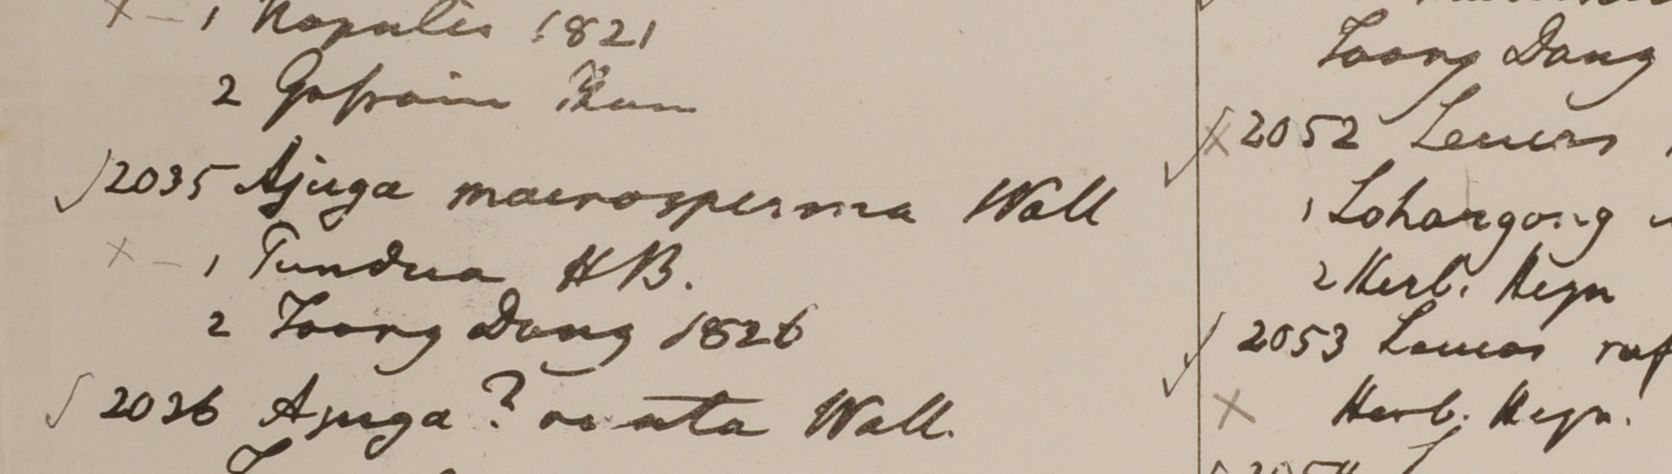 × – 1 Napalis 1821
2 Gosain Than
√ 2035 Ajuga macrosperma Wall
× – 1 Tundua HB.
2 Toong Dong 1826
√ 2036 Ajuga? ovata Wall.
Toong Dang
√ × 2052 Leucas
1 Lohargong
2 Herb. Heyn
√ 2053 Leucas ruf
× Herb. Heyn.